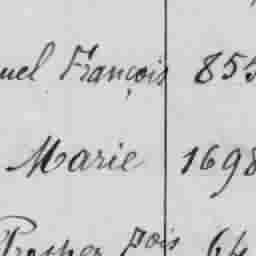 uel François 855
Marie 1698
Prosper pois 64